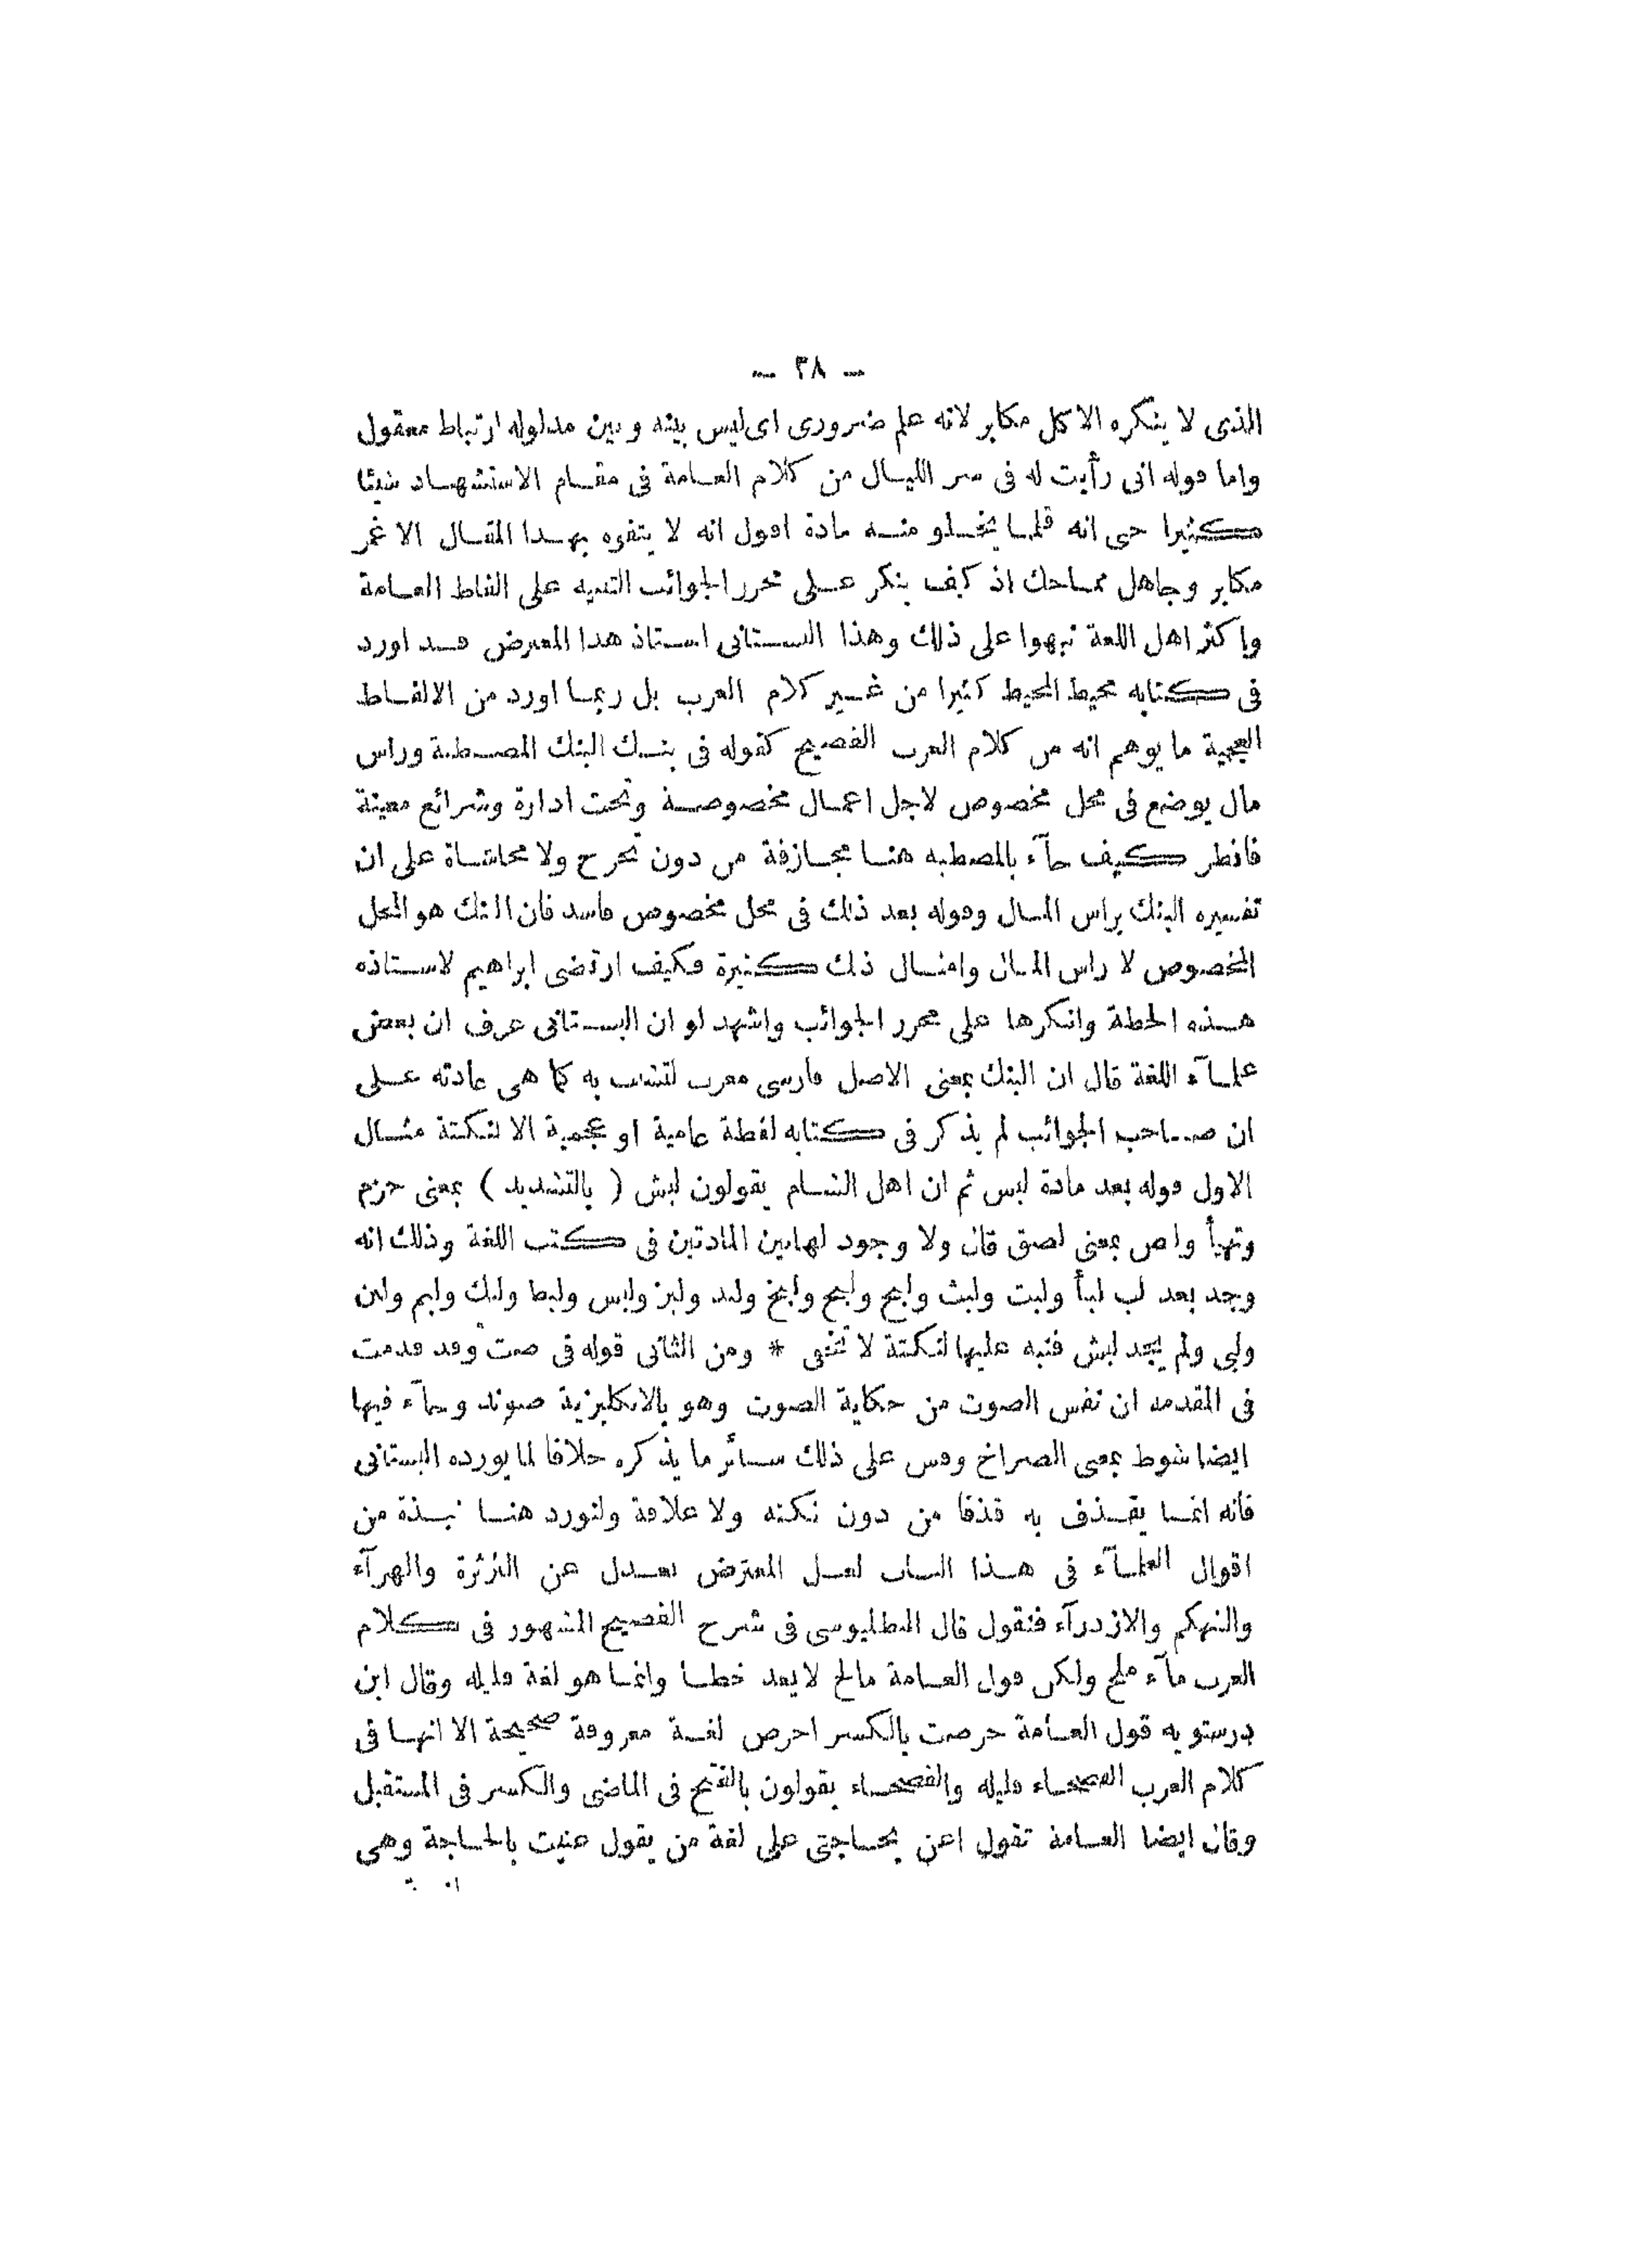 — ٣٨ —
الذى لا ينكره الا كل مكابر لانه علم ضرورى اى ليس بينه وبين مدلوله ارتباط معقول
واما قوله انى رأيت له فى سر الليـال من كلام العـامة فى مقـام الاستشهـاد شيئا
كـثيرا حتى انه قلمـا يخـلو منـه مادة اقول انه لا يتفوه بهـذا المقـال الا غمر
مكابر وجاهل مماحك اذ كيف ينكر عـلى محرر الجوائب التنبيه على الفاظ العـامة
واكثر اهل اللغة نبهوا على ذلك وهذا البسـتانى اسـتاذ هذا المعترض قـد اورد
فى كـتابه محيط المحيط كثيرا من غـير كلام العرب بل ربمـا اورد من الالفـاظ
العجمية ما يوهم انه من كلام العرب الفصيح كقوله فى بنـك البنك المصـطبة وراس
مال يوضع فى محل مخصوص لاجل اعمـال مخصوصـة وتحت ادارة وشرائع معينة
فانظر كـيف جآء بالمصطبه هنـا مجـازفة من دون تحرج ولا محاشـاة على ان
تفسيره البنك براس المـال وقوله بعد ذلك فى محل مخصوص فاسد فان البنك هو المحل
المخصوص لا راس المـال وامثـال ذلك كـثيرة فكيف ارتضى ابراهيم لاسـتاذه
هـذه الخطة وانكرها على محرر الجوائب واشهد لو ان البسـتانى عرف ان بعض
علمـآء اللغة قال ان البنك بمعنى الاصل فارسى معرب لتشبث به كما هى عادته عـلى
ان صـاحب الجوائب لم يذكر فى كـتابه لفظة عامية او عجمية الا لنكتة مثـال
الاول قوله بعد مادة لبس ثم ان اهل الشـام يقولون لبش ( بالتشديد ) بمعنى حزم
وتهيأ ولبص بمعنى لصق قال ولا وجود لهاتين المادتين فى كـتب اللغة وذلك انه
وجد بعد لب لبأ ولبت ولبث ولبج ولبح ولبخ ولبد ولبز ولبس ولبط ولبك ولبم ولبن
ولبى ولم يجد لبش فنبه عليها لنكتة لا تخفى * ومن الثانى قوله فى صت وقد قدمت
فى المقدمه ان نفس الصوت من حكاية الصوت وهو بالانكليزية صوند وجآء فيها
ايضا شوط بمعنى الصراخ وقس على ذلك سـائر ما يذكره خلافا لما يورده البستانى
فانه انمـا يقـذف به قذفا من دون نكته ولا علاقة ولنورد هنـا نبـذة من
اقوال العلمـآء فى هـذا البـاب لعـل المعترض يعـدل عن الثرثرة والهرآء
والتهكم والازدرآء فنقول قال البطليوسى فى شرح الفصيح المشهور فى كـلام
العرب مآء ملح ولكن قول العـامة مالح لا يعد خطـا وانمـا هو لغة قليله وقال ابن
درستويه قول العـامة حرصت بالكسر احرص لغـة معروفة صحيحة الا انهـا فى
كلام العرب الفصحـاء قليله والفصحـاء يقولون بالفتح فى الماضى والكسر فى المستقبل
وقال ايضا العـامة تقول اعن بحـاجتى على لغة من يقول عنيت بالحـاجة وهى